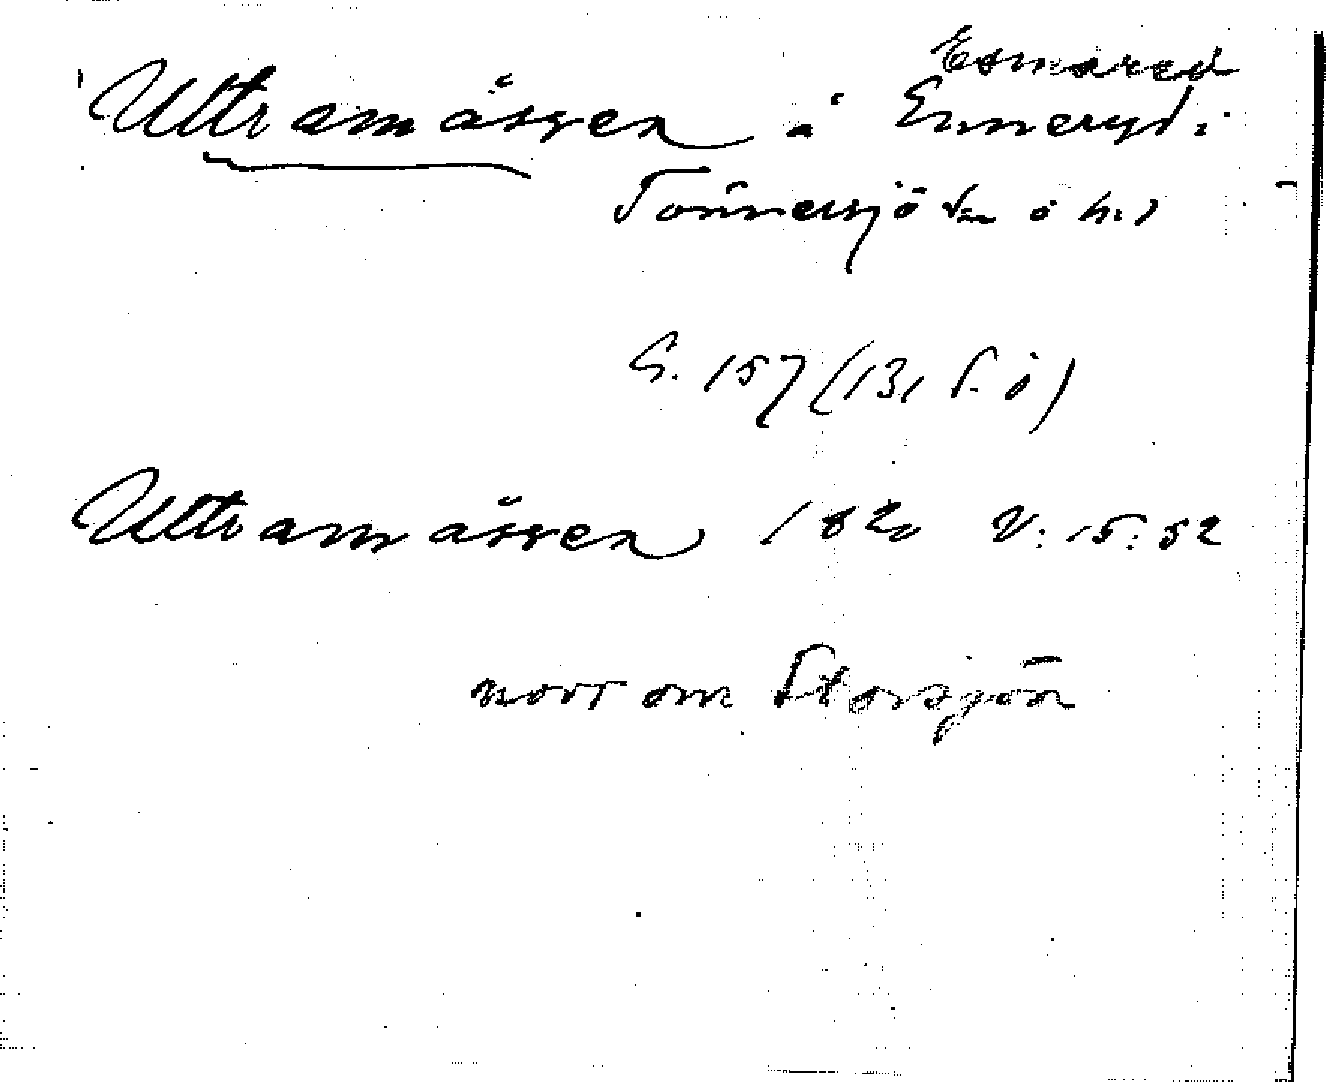 Esmared
Uttramåssen å Enneryd i
Tönnersjö sn o hd
G. 157 (131 f. ö)
Uttramåssen 1820 V: 15: 52
norr om Storsjön